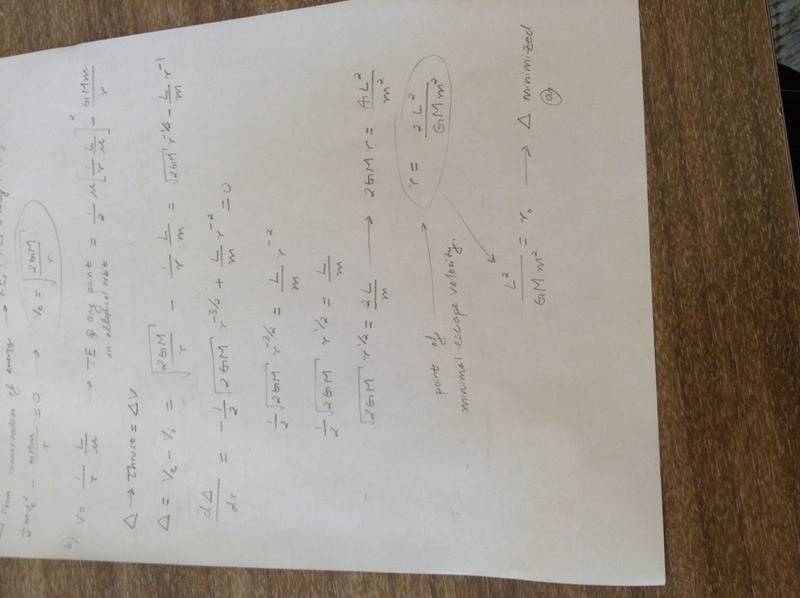 from conservation of energy →
½ mv₀² − GMm/r = 0 → v₀ = √(2GM/r)
b) v = 1/r L/μ → TE @ any point in elliptical orbit = ½ μ[1/r L/μ]² − GMm/r
Δ → Thrust = ΔV
Δ = V₂ − V₁ = √(2GM/r) − 1/r L/m = √2GM r^(-1/2) − L/m r⁻¹
dΔ/dr = −½ √2GM r^(-3/2) + L/m r⁻² = 0
½ √2GM r^(-3/2) = L/m r⁻²
½ √2GM r^(1/2) = L/m
√2GM r^(1/2) = 2L/m → 2GM r = 4L²/m²
point of minimal escape velocity. → r = 2L²/GMm²
L²/GMm² = r₀ → Δ minimized @